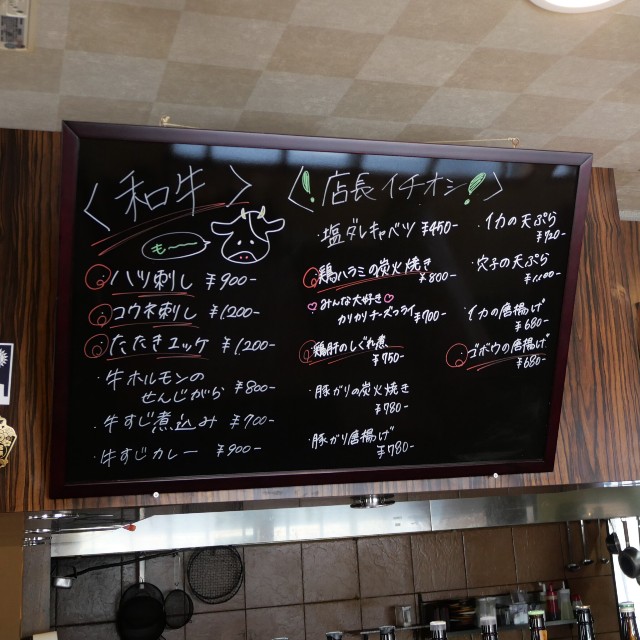 〈和牛〉
も〜〜
ハツ刺し ¥900-
コウネ刺し ¥1200-
たたきユッケ ¥1,200-
・牛ホルモンの
せんじがら ¥800-
・牛すじ煮込み ¥700-
・牛すじカレー ¥900-
〈!店長イチオシ!〉
・塩ダレキャベツ ¥450-
鶏ハラミの炭火焼き
¥800-
♡みんな大好き♡
カリカリチーズフライ ¥700-
鶏肝のしぐれ煮
¥750-
・豚ガリの炭火焼き
¥780-
・豚ガリ唐揚げ
¥780-
・イカの天ぷら
¥720-
・穴子の天ぷら
¥1,100-
・イカの唐揚げ
¥680-
ゴボウの唐揚げ
¥680-